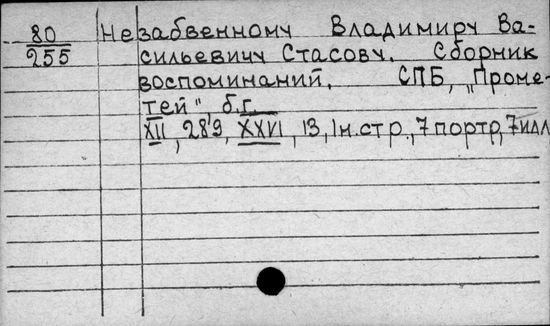 80 Незабвенному Владимиру Ва-
255 сильевичу Стасову. Сборник
воспоминаний. СПБ, „Проме-
тей" б.г.
XII, 289, XXVI, 13, 1н.стр., 7 портр, 7илл